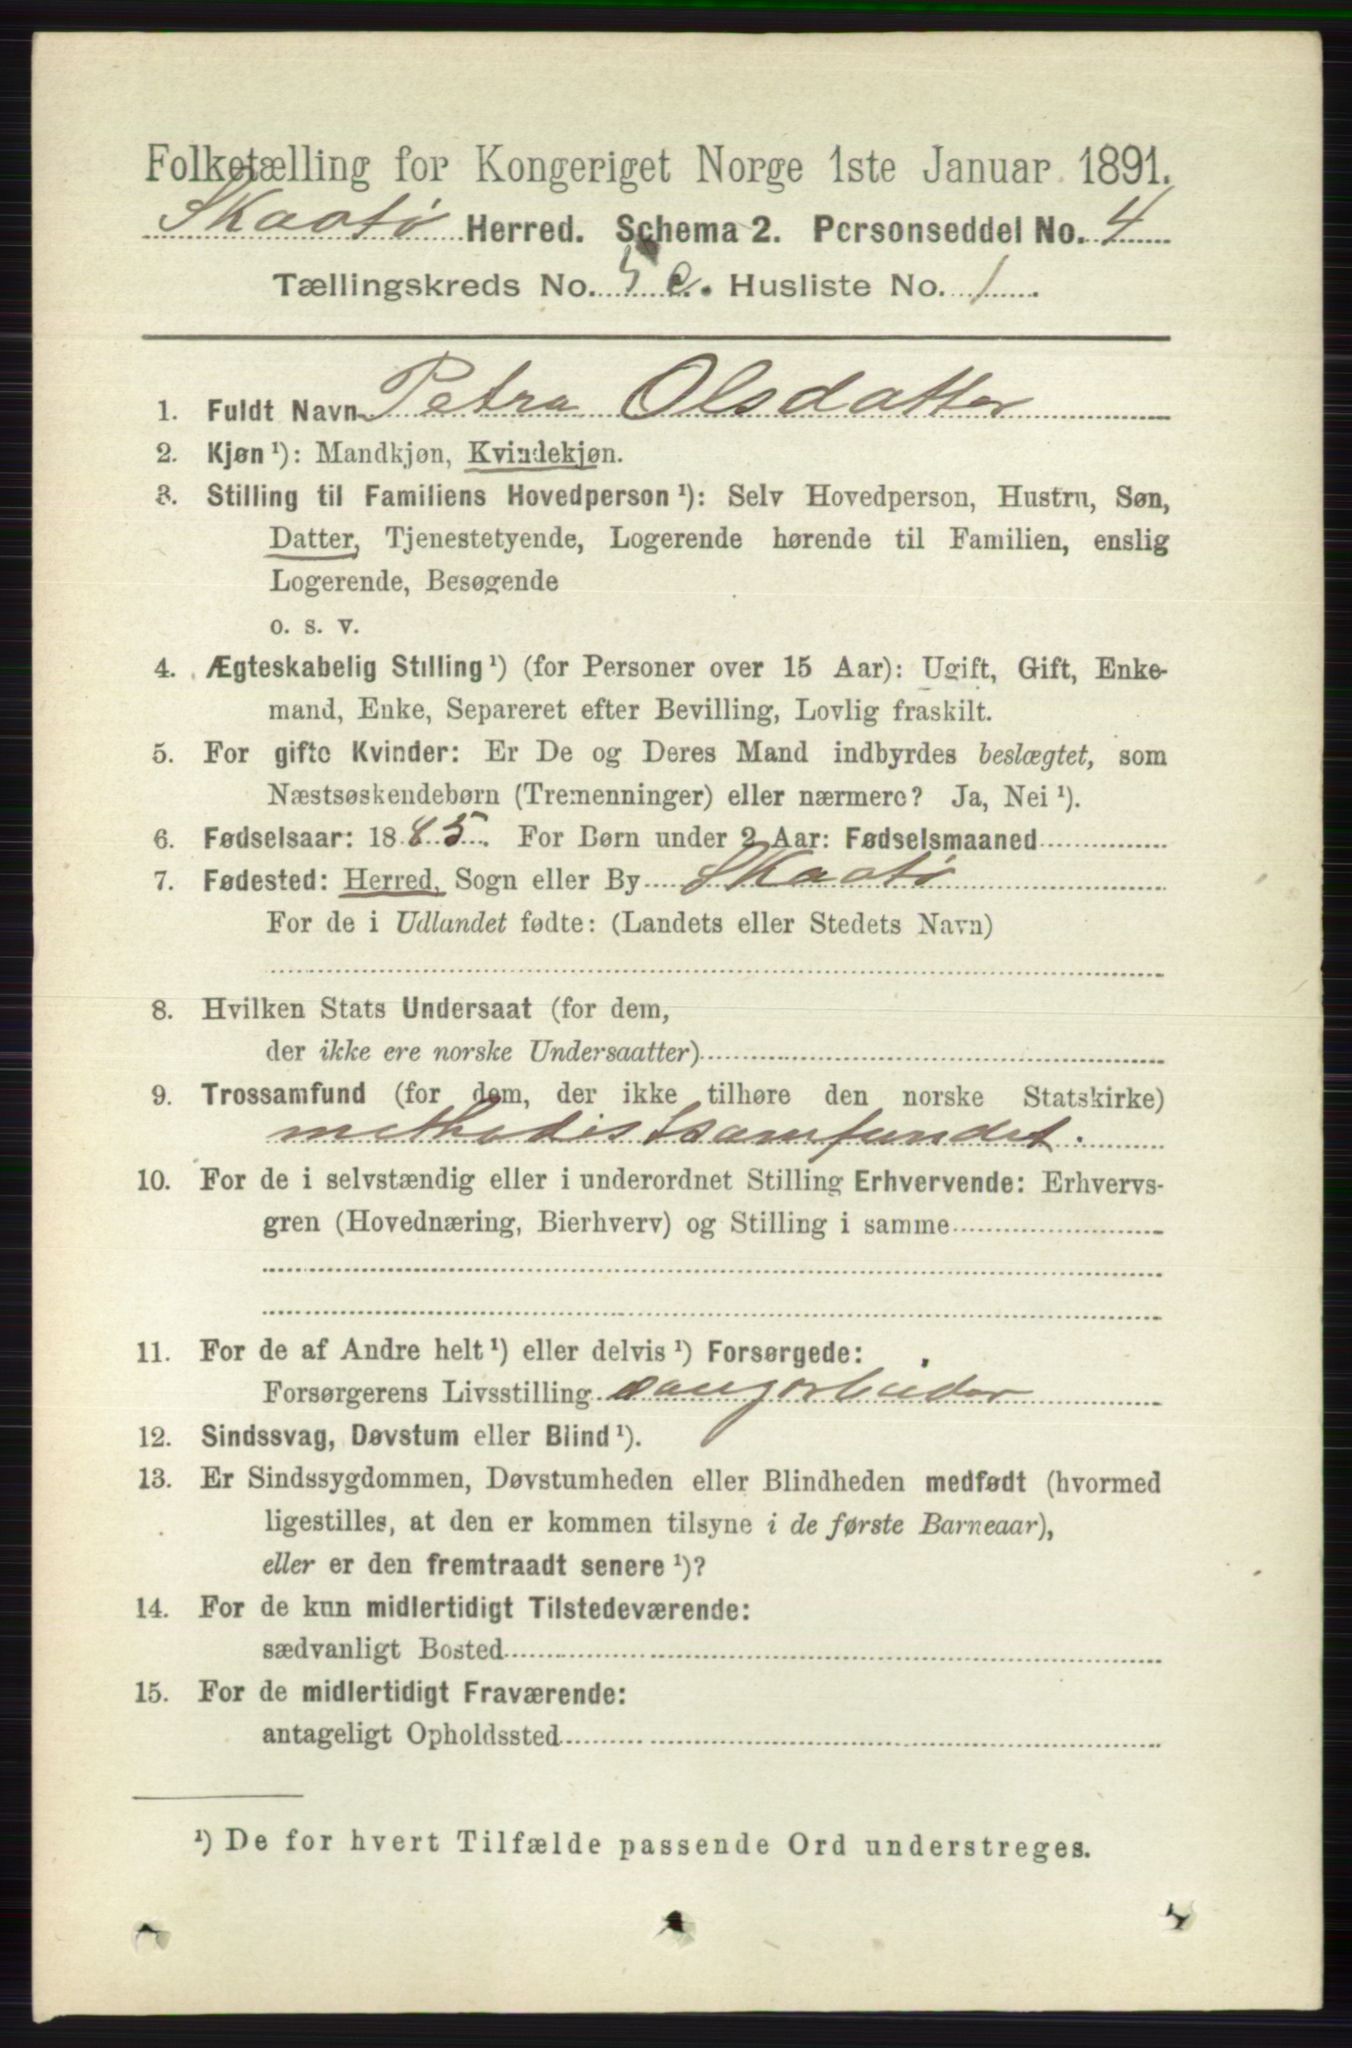 Folketælling for Kongeriget Norge 1ste Januar 1891.
Skaatø Herred. Schema 2. Personseddel No. 4
Tællingskreds No. 5 c. Husliste No. 1
1. Fuldt Navn Petra Olsdatter
2. Kjøn ¹): Mandkjøn, Kvindekjøn.
3. Stilling til Familiens Hovedperson ¹): Selv Hovedperson, Hustru, Søn,
Datter, Tjenestetyende, Logerende hørende til Familien, enslig
Logerende, Besøgende
o. s. v.
4. Ægteskabelig Stilling ¹) (for Personer over 15 Aar): Ugift, Gift, Enke-
mand, Enke, Separeret efter Bevilling, Lovlig fraskilt.
5. For gifte Kvinder: Er De og Deres Mand indbyrdes beslægtet, som
Næstsøskendebørn (Tremenninger) eller nærmere? Ja, Nei ¹).
6. Fødselsaar: 1885. For Børn under 2 Aar: Fødselsmaaned
7. Fødested: Herred, Sogn eller By Skaatø
For de i Udlandet fødte: (Landets eller Stedets Navn)
8. Hvilken Stats Undersaat (for dem,
der ikke ere norske Undersaatter)
9. Trossamfund (for dem, der ikke tilhøre den norske Statskirke)
methodistsamfundet.
10. For de i selvstændig eller i underordnet Stilling Erhvervende: Erhvervs-
gren (Hovednæring, Bierhverv) og Stilling i samme
11. For de af Andre helt ¹) eller delvis ¹) Forsørgede:
Forsørgerens Livsstilling
12. Sindssvag, Døvstum eller Blind ¹).
13. Er Sindssygdommen, Døvstumheden eller Blindheden medfødt (hvormed
ligestilles, at den er kommen tilsyne i de første Barneaar),
eller er den fremtraadt senere ¹)?
14. For de kun midlertidigt Tilstedeværende:
sædvanligt Bosted
15. For de midlertidigt Fraværende:
antageligt Opholdssted
¹) De for hvert Tilfælde passende Ord understreges.